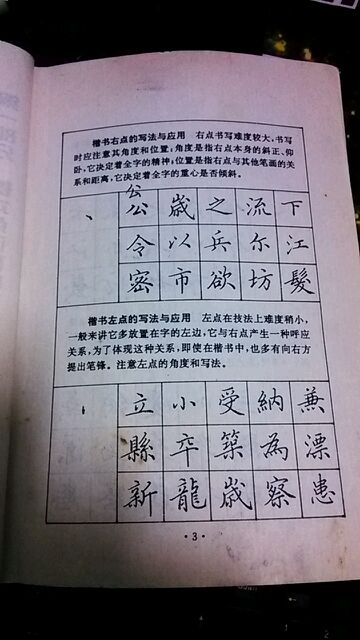 楷书右点的写法与应用 右点书写难度较大,书写
时应注意其角度和位置;角度是指右点本身的斜正、仰
卧,它决定着全字的精神;位置是指右点与其他笔画的关
系和距离,它决定着全字的重心是否倾斜。
公
丶 公 歲 之 流 下
令 以 兵 尔 江
密 市 欲 坊 髮
楷书左点的写法与应用 左点在技法上难度稍小,
一般来讲它多放置在字的左边,它与右点产生一种呼应
关系,为了体现这种关系,即使在楷书中,也多有向右方
提出笔锋。注意左点的角度和写法。
立 小 受 納 兼
縣 卒 築 為 漂
新 龍 歲 察 患
·3·